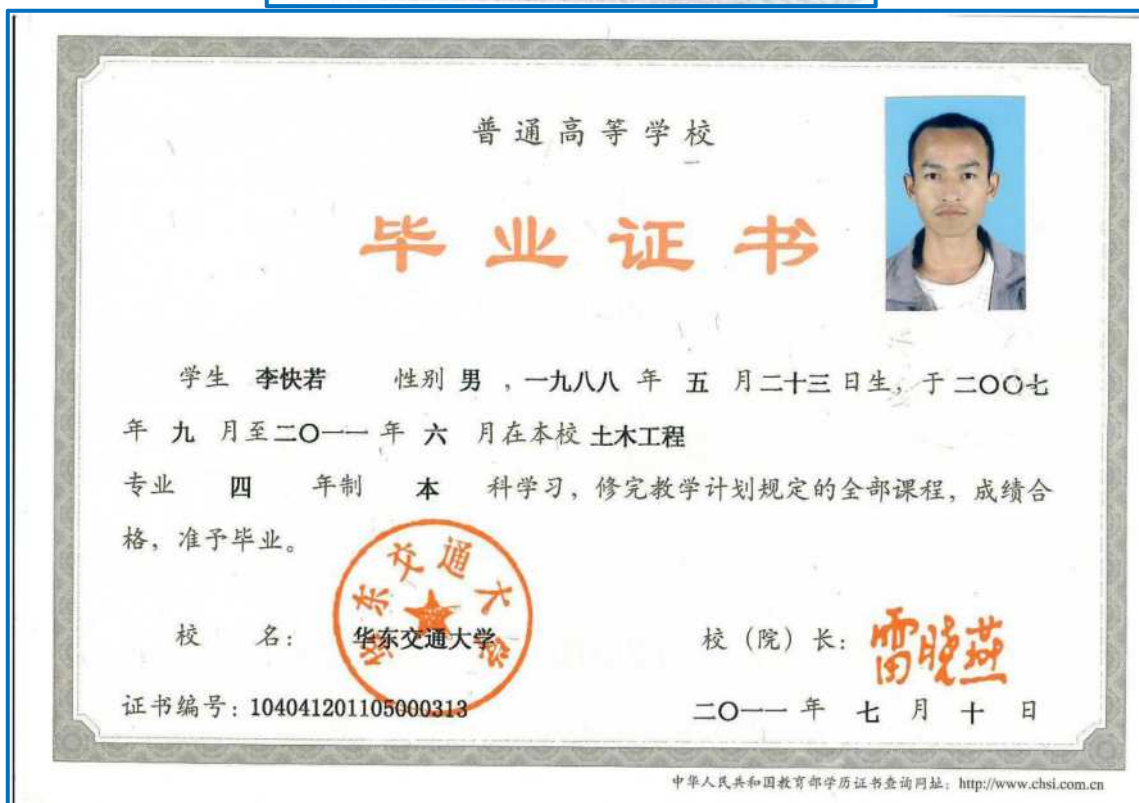 普通高等学校
毕业证书
学生 李快若 性别 男 ，一九八八 年 五 月二十三 日生，于 二〇〇七
年 九 月至二〇一一 年 六 月在本校 土木工程
专业 四 年制 本 科学习，修完教学计划规定的全部课程，成绩合
格，准予毕业。
华东交通大学
校 名： 华东交通大学 校（院）长： 雷晓燕
证书编号：104041201105000313 二〇一一 年 七 月 十 日
中华人民共和国教育部学历证书查询网址：http://www.chsi.com.cn